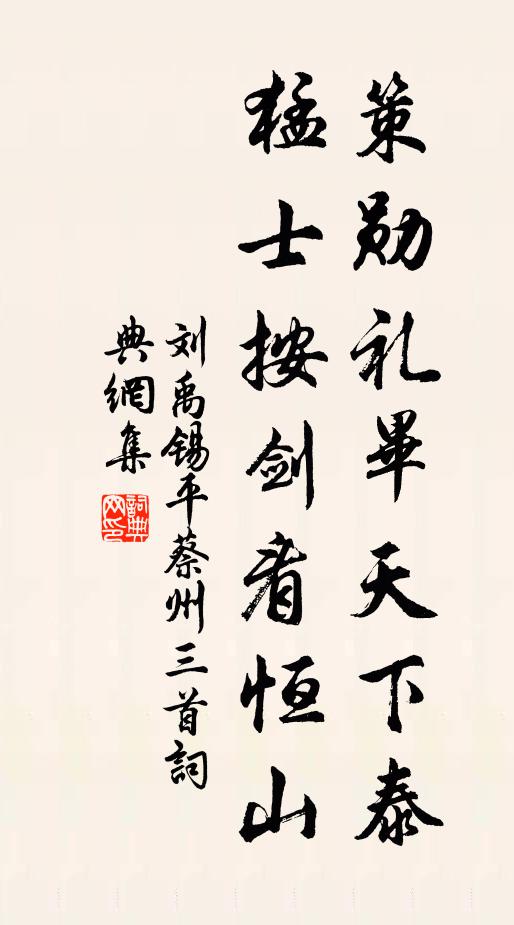 策勋礼畢天下泰
猛士按剑看恒山
刘禹锡平蔡州三首詞
典網集
詞典
网印